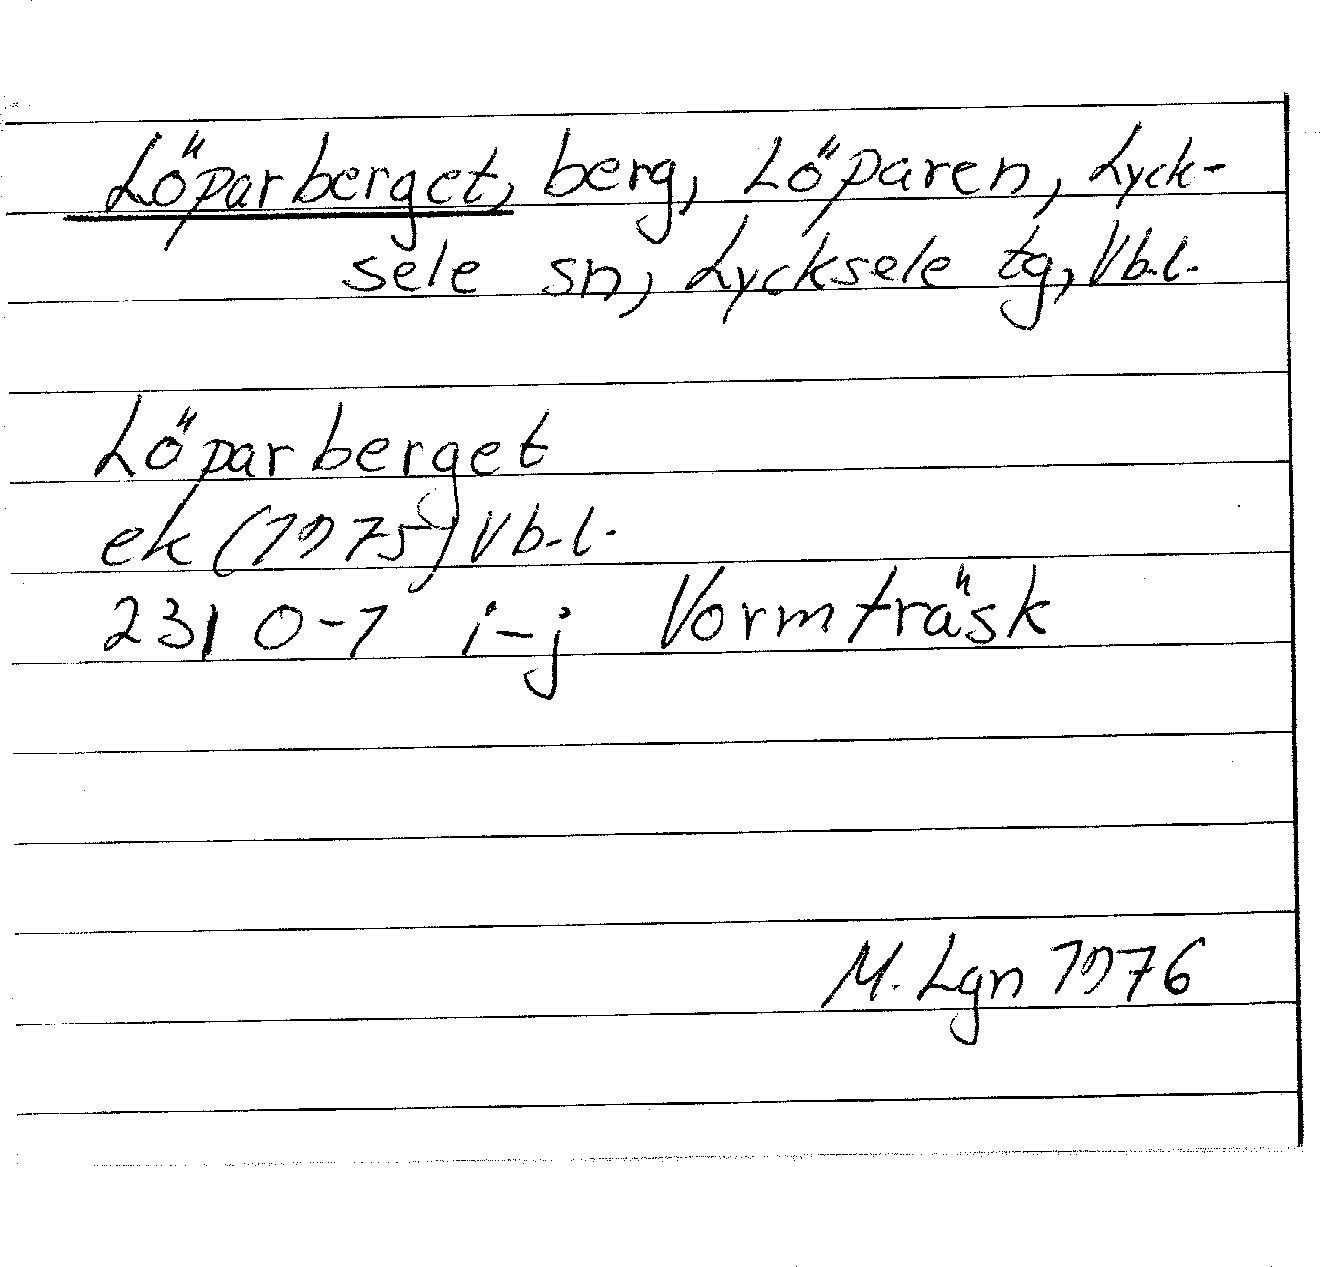 Löparberget, berg, Löparen, Lyck-
sele sn, Lycksele tg, Vb.l.
Löparberget
ek (1975) Vb.l.
23I 0-1 i-j Vormträsk
M. Lgn 1976